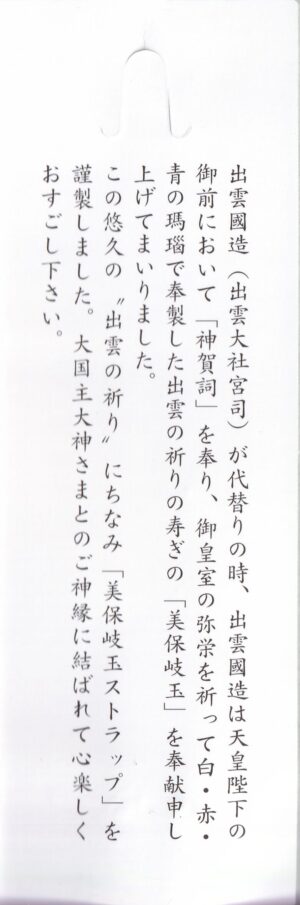 出雲國造（出雲大社宮司）が代替りの時、出雲國造は天皇陛下の
御前において「神賀詞」を奉り、御皇室の弥栄を祈って白・赤・
青の瑪瑙で奉製した出雲の祈りの寿ぎの「美保岐玉」を奉献申し
上げてまいりました。
この悠久の〝出雲の祈り〟にちなみ「美保岐玉ストラップ」を
謹製しました。大国主大神さまとのご神縁に結ばれて心楽しく
おすごし下さい。